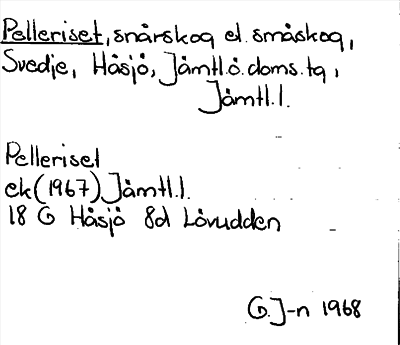 Pelleriset, snårskog el. småskog,
Svedje, Håsjö, Jämtl.ö.doms.tg,
Jämtl.l.
Pelleriset
ek (1967) Jämtl.l.
18 G Håsjö 8d Lövudden
G.J-n 1968